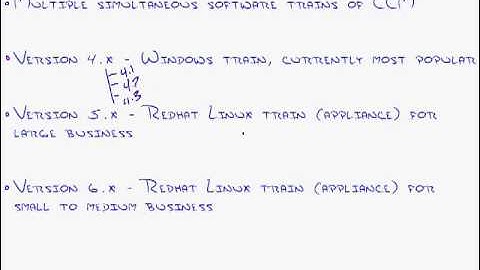 • Multiple simultaneous software trains of CCM
• Version 4.x - Windows train, currently most popular
4.1
4.2
4.3
• Version 5.x - Redhat Linux train (appliance) for
large business
• Version 6.x - Redhat Linux train (appliance) for
small to medium business